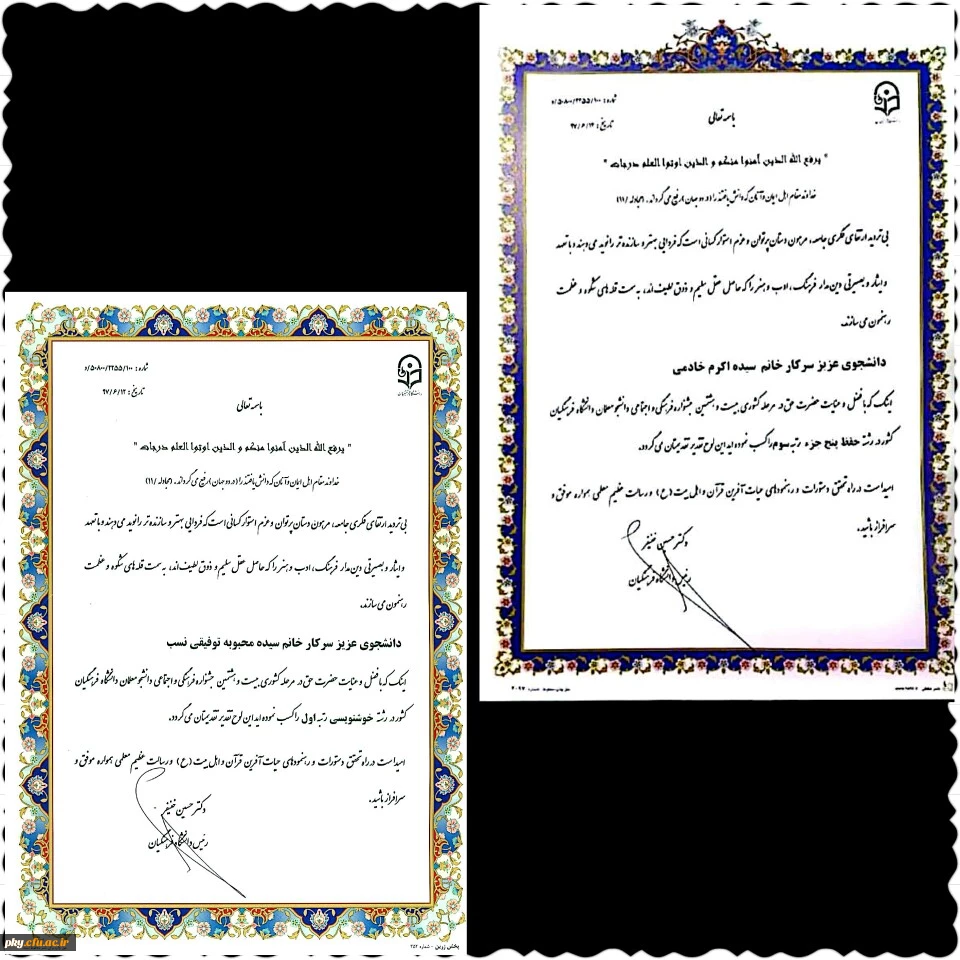 شماره : ۵۰۸۰۰/۲۲۵۵/۱۰۰/د
تاریخ : ۹۷/۶/۱۲
باسمه تعالی
" یرفع الله الذین آمنوا منکم و الذین اوتوا العلم درجات "
خداوند مقام اهل ایمان و آنان که دانش یافتند را (در دو جهان) رفیع می گرداند. (مجادله /۱۱)
بی تردید ارتقای فکری جامعه، مرهون دستان پرتوان و عزم استوار کسانی است که فردایی بهتر و سازنده تر را نوید می دهند و با تعهد
و ایثار و بصیرتی دین مدار فرهنگ، ادب و هنر را که حاصل عقل سلیم و ذوق لطیف اند، به سمت قله های شکوه و عظمت
رهنمون می سازند.
دانشجوی عزیز سرکار خانم سیده اکرم خادمی
اینک که با فضل و عنایت حضرت حق در مرحله کشوری بیست و هشتمین جشنواره فرهنگی و اجتماعی دانشجو معلمان دانشگاه فرهنگیان
کشور در رشته حفظ پنج جزء رتبه سوم را کسب نموده اید این لوح تقدیر تقدیمتان می گردد.
امید است در راه تحقق دستورات و رهنمودهای حیات آفرین قرآن و اهل بیت (ع) و رسالت عظیم معلمی همواره موفق و
سرافراز باشید.
دکتر حسین خنیفر
رئیس دانشگاه فرهنگیان
شماره : ۵۰۸۰۰/۲۲۵۵/۱۰۰/د
تاریخ : ۹۷/۶/۱۲
باسمه تعالی
" یرفع الله الذین آمنوا منکم و الذین اوتوا العلم درجات "
خداوند مقام اهل ایمان و آنان که دانش یافتند را (در دو جهان) رفیع می گرداند. (مجادله /۱۱)
بی تردید ارتقای فکری جامعه، مرهون دستان پرتوان و عزم استوار کسانی است که فردایی بهتر و سازنده تر را نوید می دهند و با تعهد
و ایثار و بصیرتی دین مدار فرهنگ، ادب و هنر را که حاصل عقل سلیم و ذوق لطیف اند، به سمت قله های شکوه و عظمت
رهنمون می سازند.
دانشجوی عزیز سرکار خانم سیده محبوبه توفیقی نسب
اینک که با فضل و عنایت حضرت حق در مرحله کشوری بیست و هشتمین جشنواره فرهنگی و اجتماعی دانشجو معلمان دانشگاه فرهنگیان
کشور در رشته خوشنویسی رتبه اول را کسب نموده اید این لوح تقدیر تقدیمتان می گردد.
امید است در راه تحقق دستورات و رهنمودهای حیات آفرین قرآن و اهل بیت (ع) و رسالت عظیم معلمی همواره موفق و
سرافراز باشید.
دکتر حسین خنیفر
رئیس دانشگاه فرهنگیان
پخش زرین - شماره ۲۵۲
pky.cfu.ac.ir